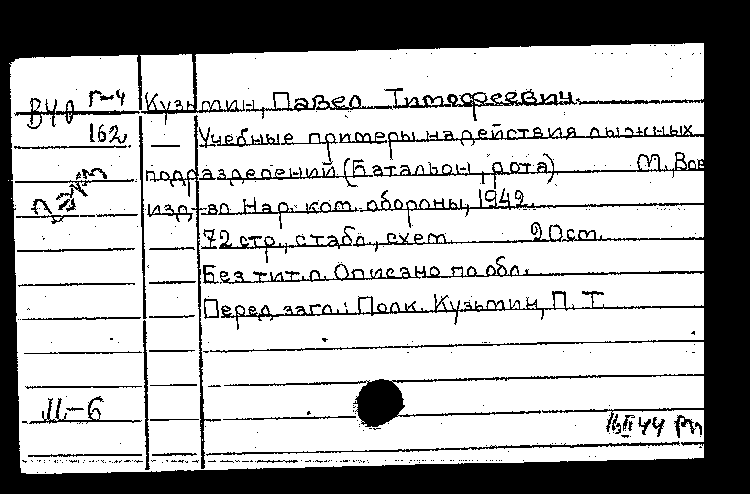 В40 Г-4
162
Кузьмин, Павел Тимофеевич.
— Учебные примеры на действия лыжных
подразделений (Батальон, рота) М., Вое
изд-во Нар. ком. обороны, 1942.
72 стр., с табл., схем. 20 ст.
Без тит. л. Описано по обл.
Перед загл.: Полк. Кузьмин, П. Т.
II-6